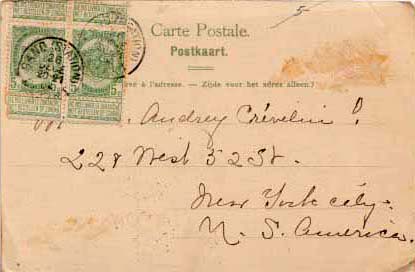 5
Carte Postale.
Postkaart.
à l'adresse. — Zijde voor het adres alleen?
GAND (STATION)
Audrey Crévelin
228 West 52 St.
New York city.
N. S. America.